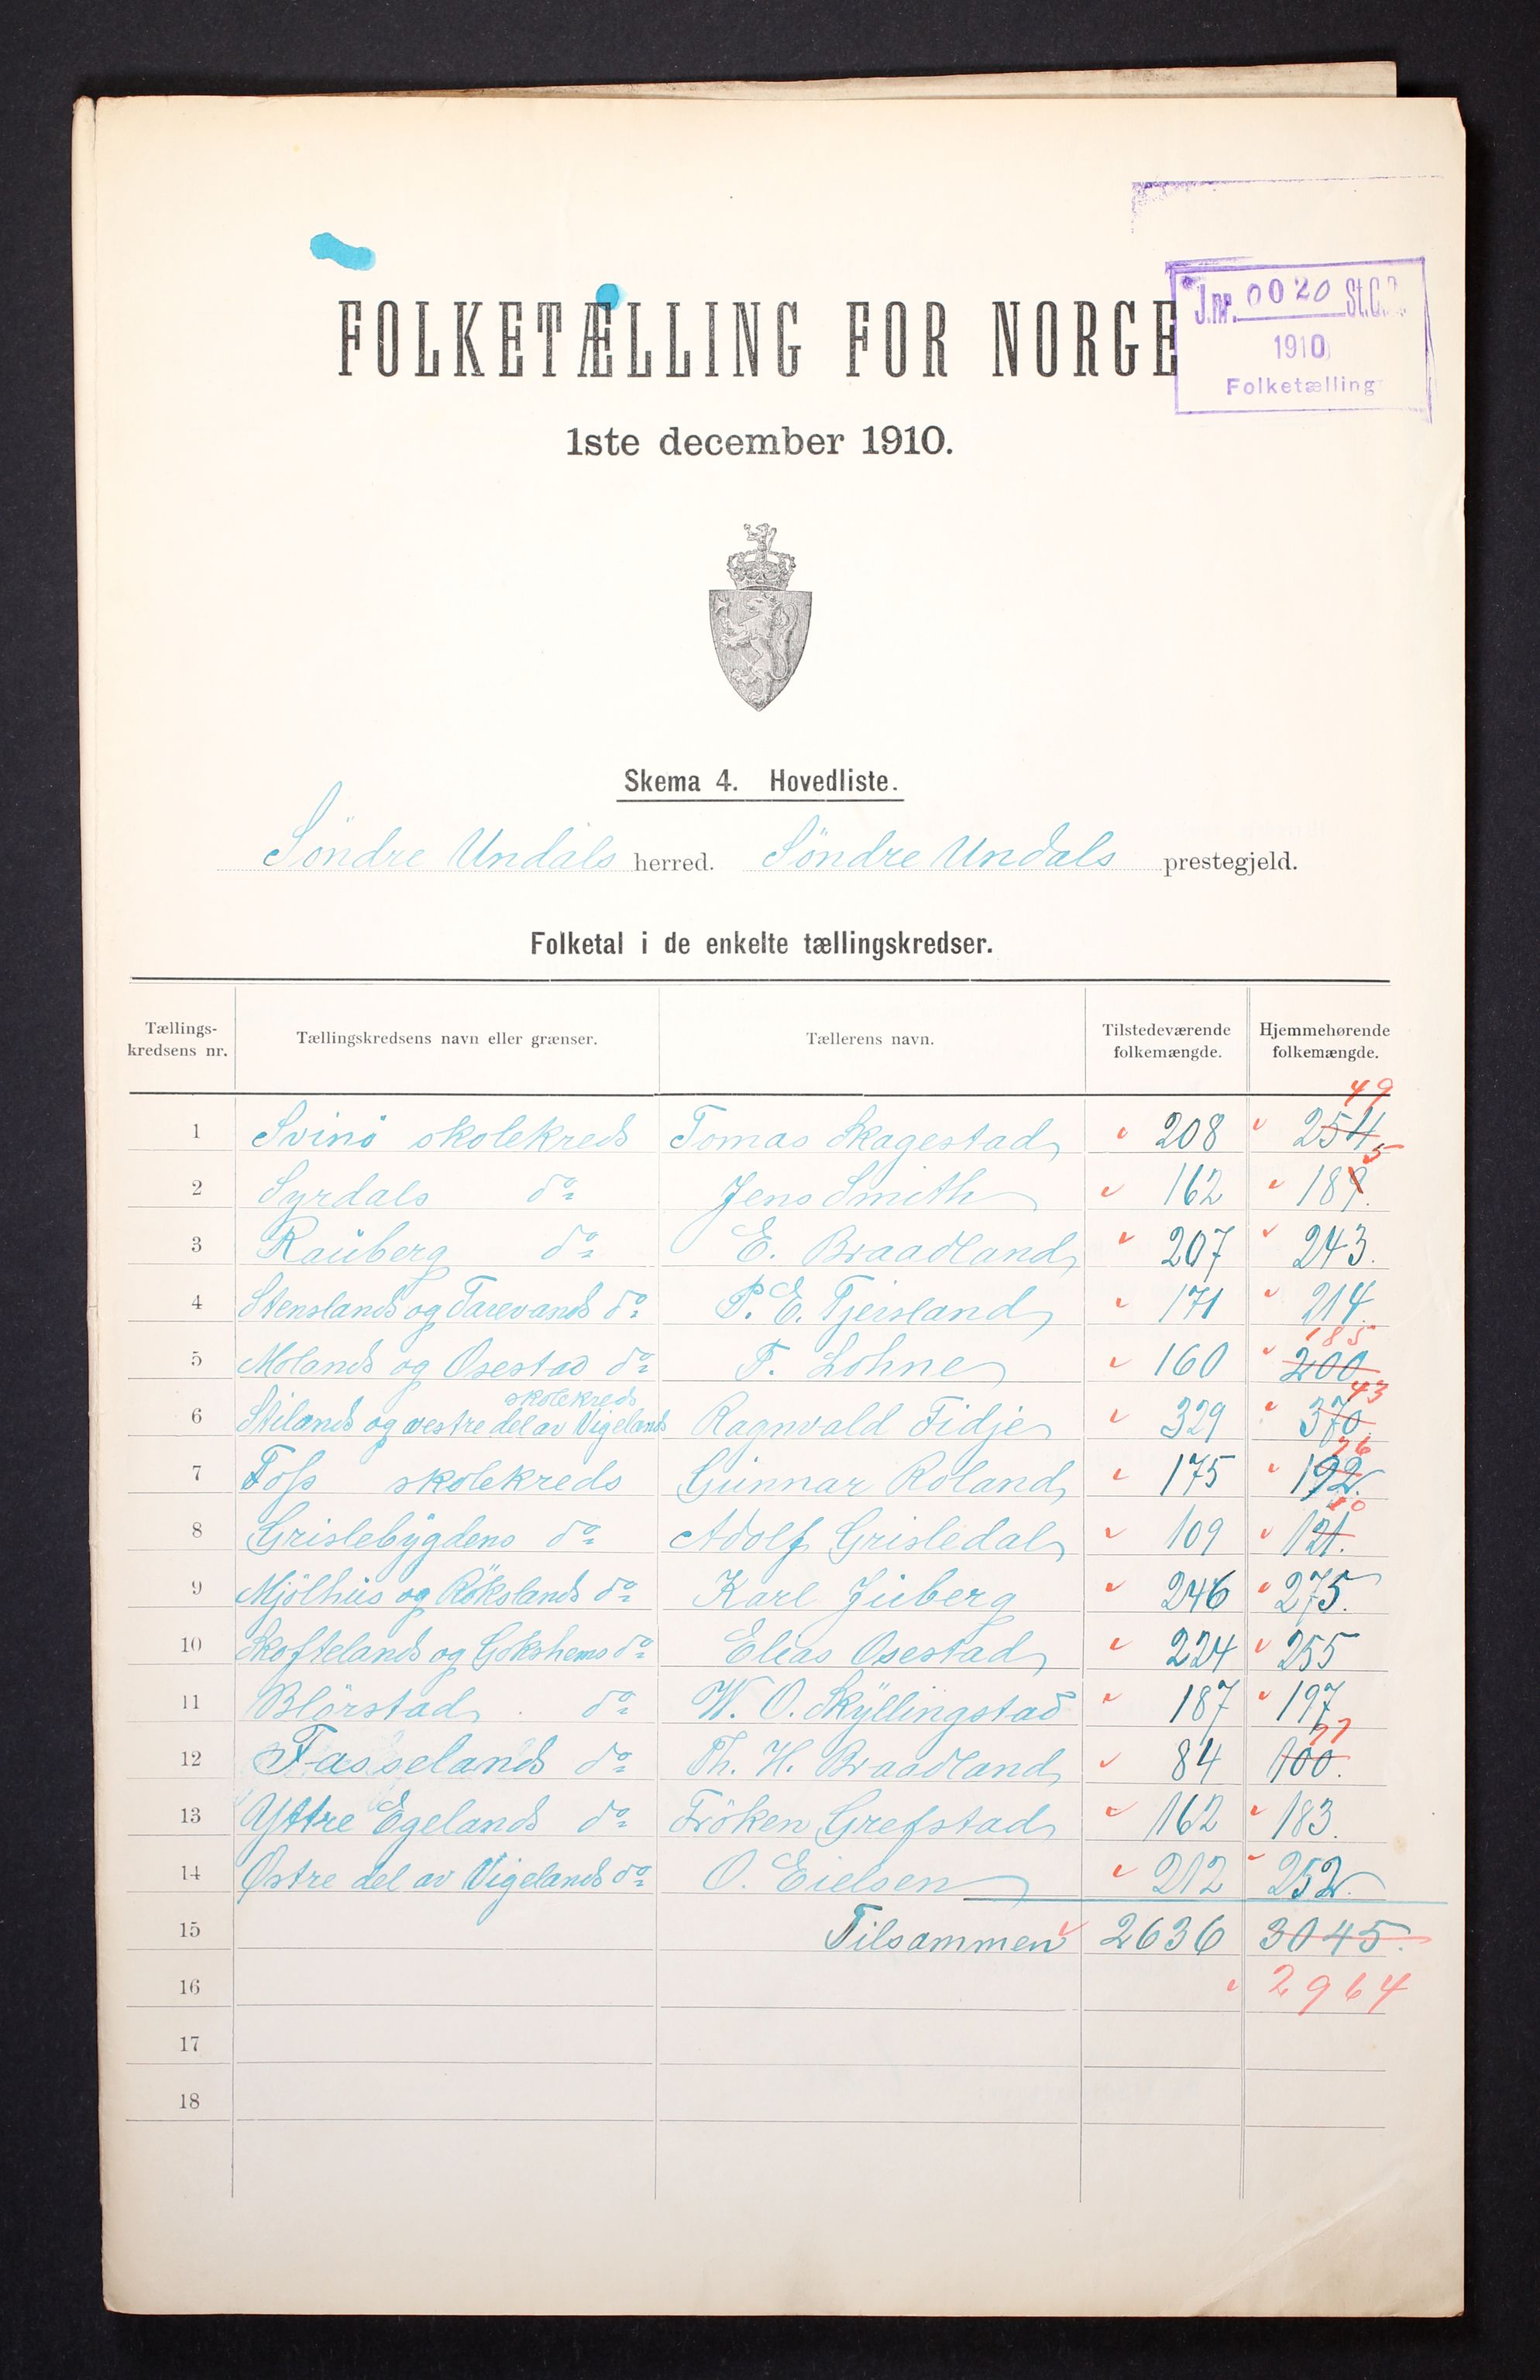 J.nr. 0020 St.C.B.
1910
Folketælling
FOLKETÆLLING FOR NORGE
1ste december 1910.
Skema 4. Hovedliste.
Söndre Undals herred. Söndre Undals prestegjeld.
Folketal i de enkelte tællingskredser.
Tællings-kredsens nr. Tællingskredsens navn eller grænser. Tællerens navn. Tilstedeværende folkemængde. Hjemmehørende folkemængde.
49
1 Svinö skolekreds Tomas Skagestad 208 254
5
2 Syrdals do 	Jens Smith 162 189.
3 Rauberg do E. Braadland 207 243.
4 Stenslands og Tarevands do P. E. Tjersland 171 214.
185
5 Molands og Osestad do T. Lohne 160 200
skolekreds 43
6 Stilands og vestre del av Vigelands Ragnvald Fidje 329 370
76
7 Foss skolekreds Gunnar Roland 175 192.
10
8 Grislebygdens do Adolf Grisledal 109 121.
9 Mjölhus og Rökslands do Karl Juberg 246 275.
10 Skoftelands og Gokshems do Elias Osestad 224 255
11 Blörstad do W. O. Skyllingstad 187 197
77
12 Fasselands do Th. H. Braadland 84 100.
13 Yttre Egelands do Fröken Grefstad 162 183.
14 Østre del av Vigelands do O. Eielsen 212 252.
15 Tilsammen 2636 3045.
16 2964
17
18